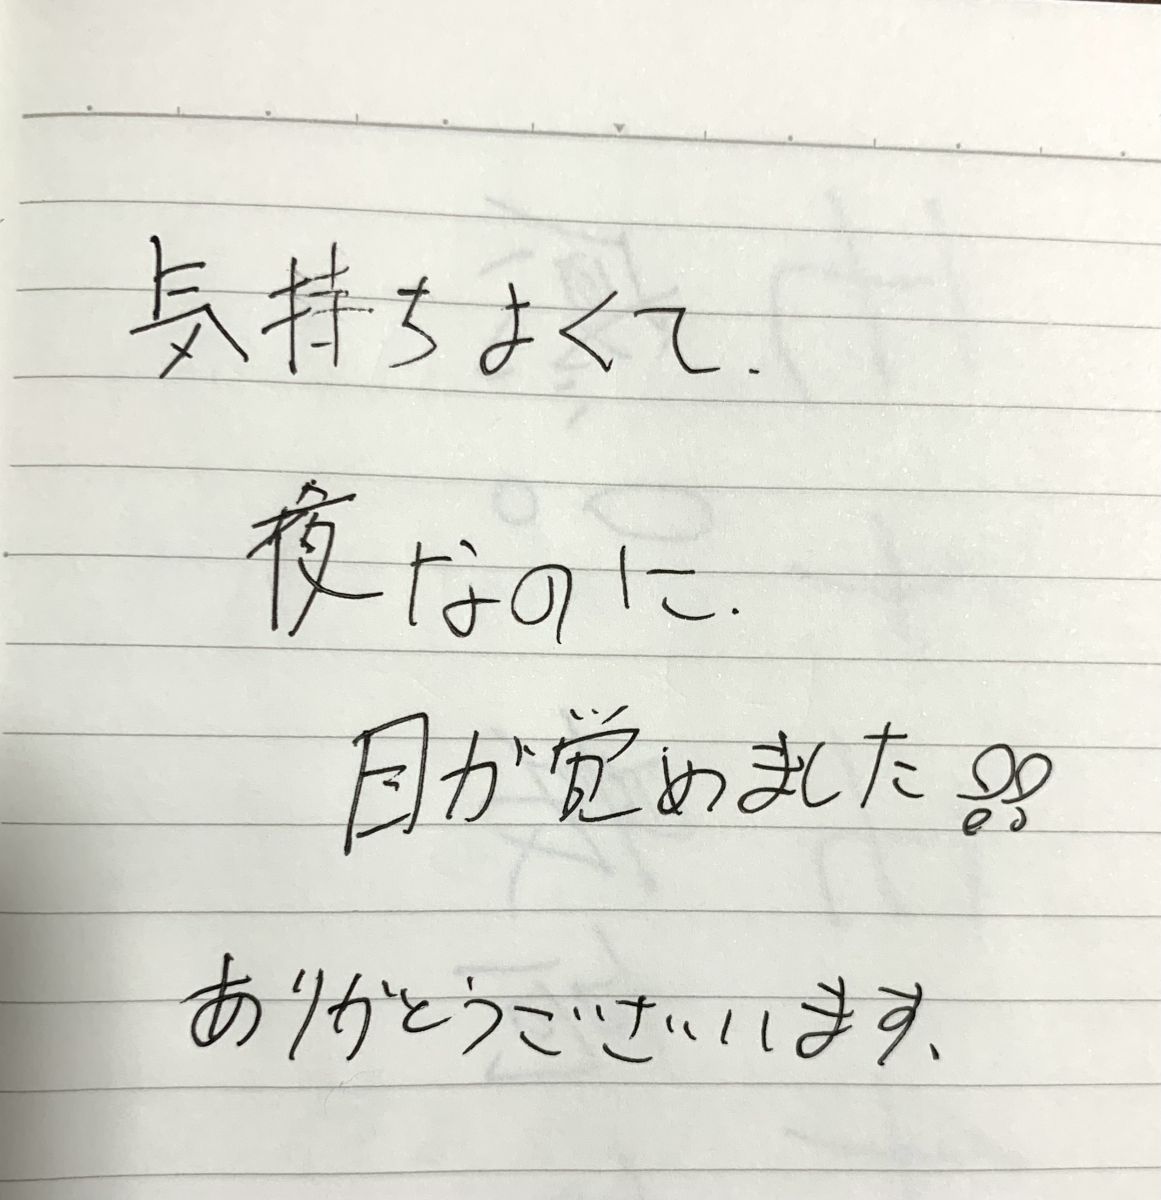 気持ちよくて.
夜なのに.
目が覚めました!!
ありがとうございます、